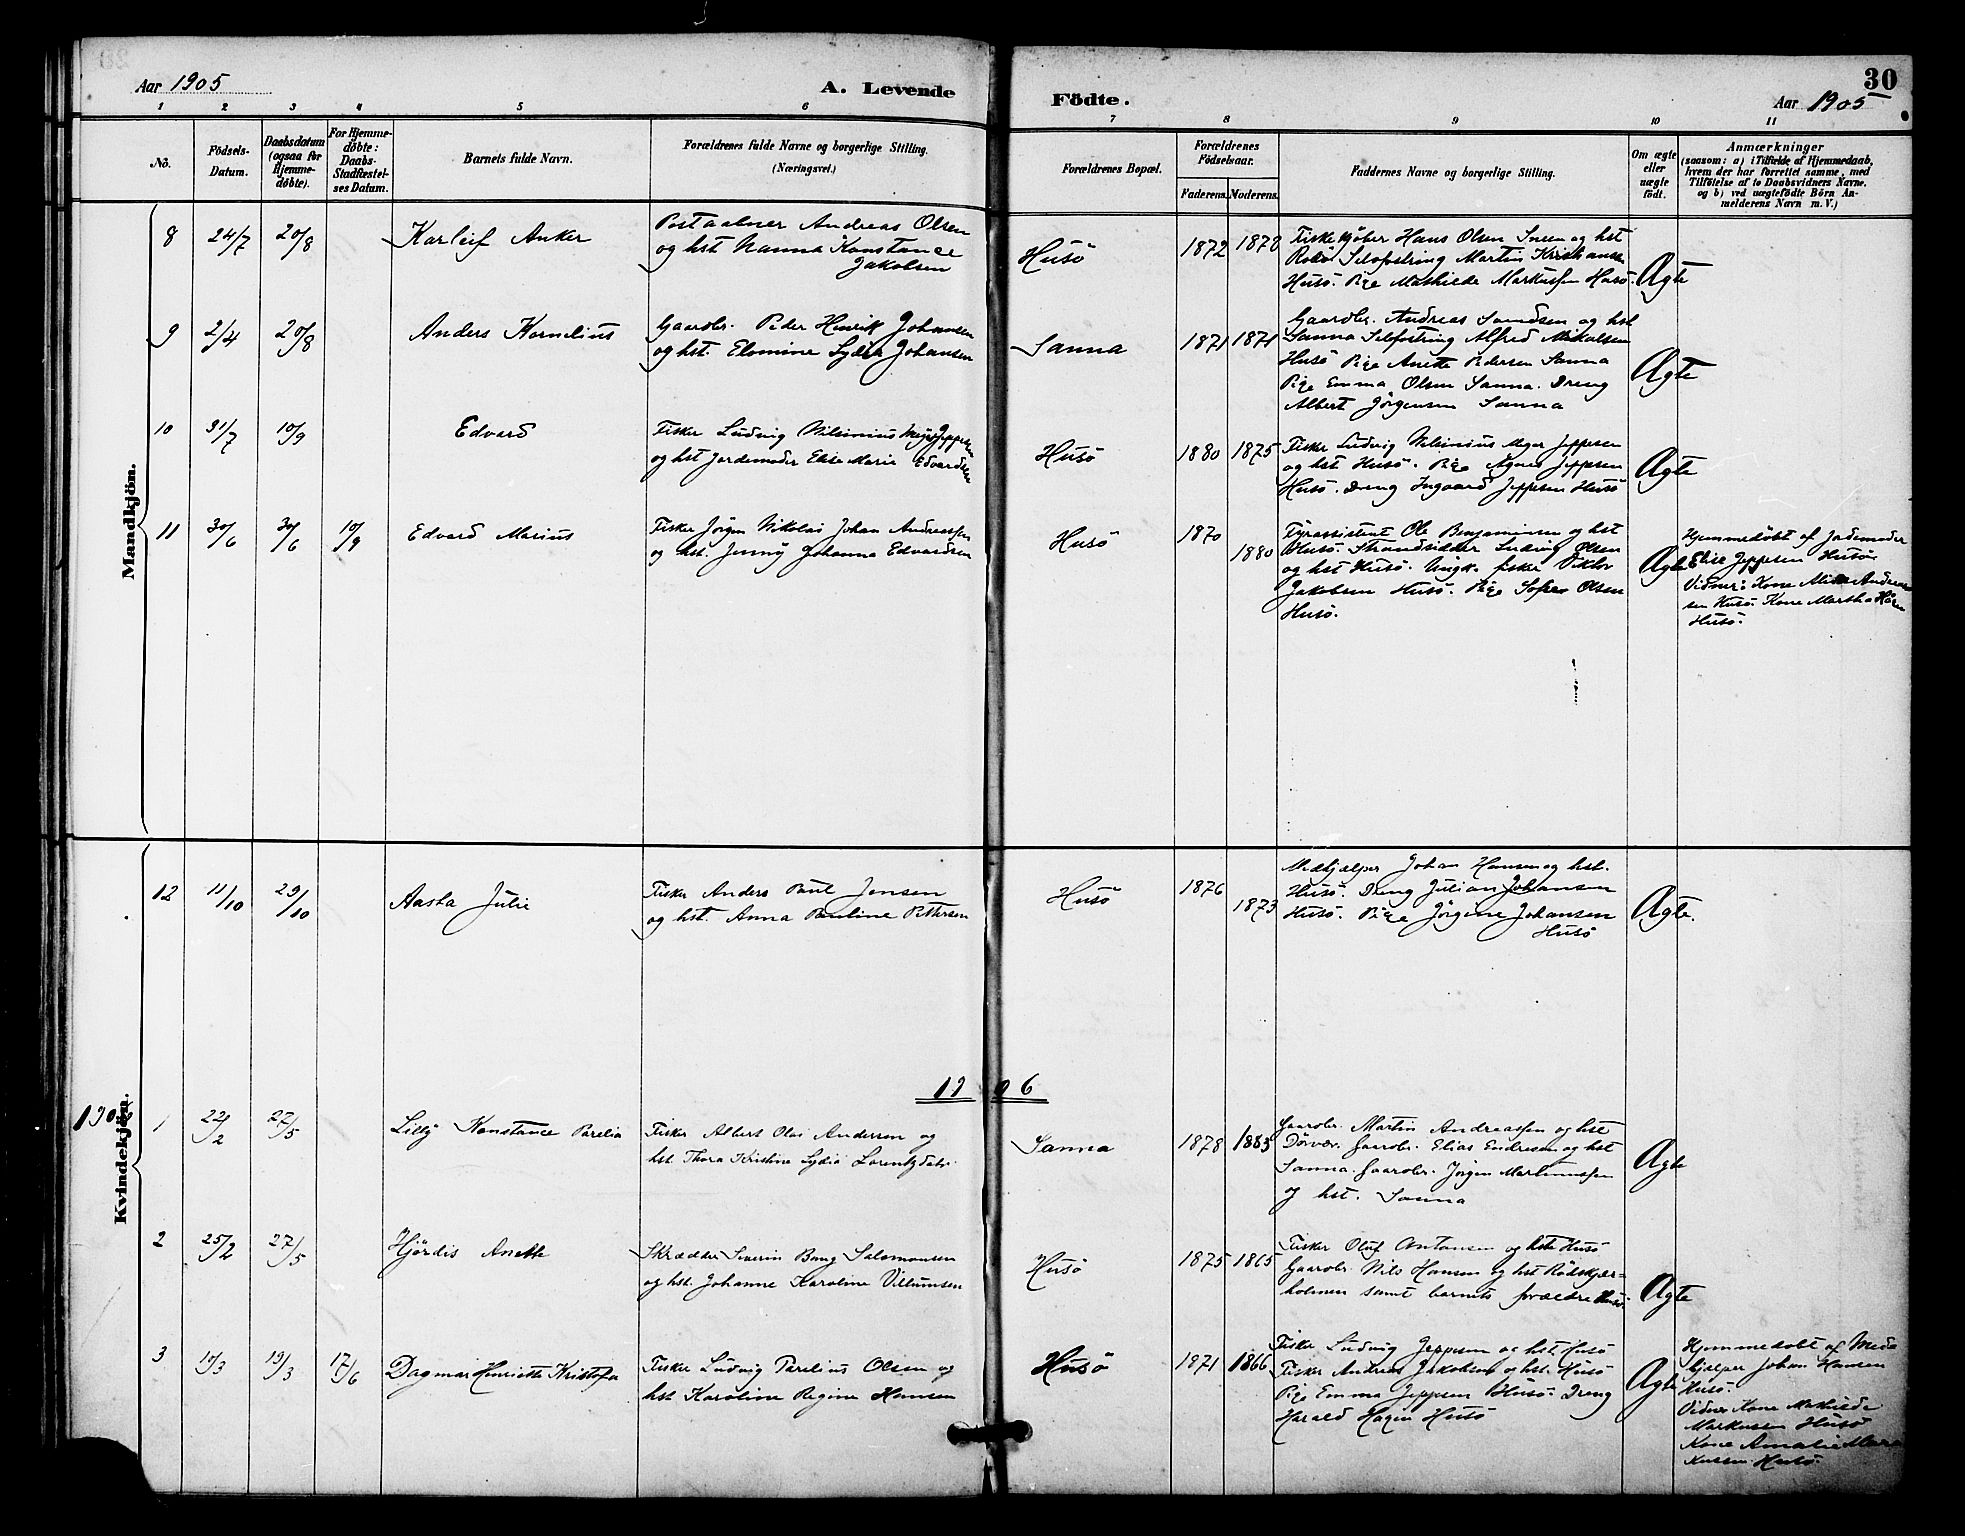 Aar 1905
A. Levende
Födte.
30
Aar 1905
1 2 3 4 5 6 7 8 9 10 11
Nö.
Födsels-
Datum.
Daabsdatum
(ogsaa for
Hjemme-
døbte).
For Hjemme-
døbte:
Daabs-
Stadfæstel-
ses Datum.
Barnets fulde Navn.
Forældrenes fulde Navne og borgerlige Stilling.
(Næringsvei.)
Forældrenes Bopæl.
Forældrenes
Födselsaar.
Faderens.
Moderens.
Faddernes Navne og borgerlige Stilling.
Om ægte
eller
uægte
født.
Anmærkninger
(saasom: a) i Tilfælde af Hjemmedaab,
hvem der har forrettet samme, med
Tilföielse af to Daabsvidners Navne,
og b) ved uægtefödte Börn An-
melderens Navn m. V.)
Mandkjön.
8 24/7 20/8 Karleif Anker
Postaabner Andreas Olsen
og hst Nanna Konstance
Jakobsen
Husö 1872 1878
Fiskekjöber Hans Olsen og hst
Martin Kristiansen
Husö. Pige Mathilde Markussen Husö.
Ægte
9 2/4 20/8 Anders Kornelius
Gaardbr. Peder Henrik Johansen
og hst. Elomine Lydia Johansen
Sanna 1871 1871
Gaardbr. Andreas og hst
Sanna Alfred Nikolsen
Husö Pige Anette Pedersen Sanna
Pige Emma Olsen Sanna. Dreng
Albert Jörgensen Sanna
Ægte
10 31/7 10/9 Edvard
Fisker Ludvig Nilsinius Meyer Jeppesen
og hst Jordemoder Elise Marie Edvardsen
Husö 1880 1875
Fisker Ludvig Nilsinius Meyer Jeppesen
og hst Husö. Pige Agnes Jeppesen
Husö. Dreng Ingvard Jeppesen Husö
Ægte
11 30/6 30/6 10/9 Edvard Marius
Fisker Jörgen Nikolai Johan Andreassen
og hst. Jenny Johanna Edvardsen
Husö 1870 1880
Fyrassistent Ole Benjaminsen og hst
Husö. Strandsidder Ludvig Olsen
og hst Husö. Ungk. fisker Viktor
Jakobsen Husö. Pige Sofie Olsen
Husö.
Ægte
Hjemmedöbt af Jordemoder
Elise Jeppesen Husö
Vidner: Kone Andreas-
sen Husö. Kone Martha
Husö.
Kvindekjön.
12 11/10 29/10 Aasta Julie
Fisker Anders Paul Jensen
og hst. Anna Pauline Pettersen
Husö 1876 1873
Medhjælper Johan Hansen og hst.
Husö. Dreng Julian Johansen
Husö. Pige Jörgine Johansen
Husö
Ægte.
1906
1 22/2 27/5 Lilly Konstance Parelia
Fisker Albert Olai Andersen og
hst. Thora Kristine Lydia Lorentzdatr.
Sanna 1878 1883
Gaardbr. Martin Andreassen og hst
Dörvær. Gaardbr. Elias Endresen og hst
Sanna. Gaardbr. Jörgen Martinussen
og hst. Sanna
Ægte
2 25/2 27/5 Hjördis Anette
Skrædder Severin Bang Salomonsen
og hst. Johanne Karoline Villumsen
Husö 1875 1865
Fisker Oluf Antonsen og hst Husö
Gaardbr. Nils Hansen og hst Rödskjær-
holmen samt barnets forældre Husö.
Ægte
3 19/3 17/6 Dagmar Henriette Kristofa
Fisker Ludvig Parelius Olsen og
hst Karoline Regine Hansen
Husö 1871 1866
Fisker Ludvig Jeppesen og hst. Husö
Fisker Andreas Jakobsen og hst. Husö
Pige Emma Jeppsen Husö. Dreng
Harald Hagen Husö
Ægte
Hjemmedöbt af Med-
hjælper Johan Hansen
Husö.
Vidner Kone Mathilde
Markussen Husö
Kone Amalie Mar-
kussen Husö.